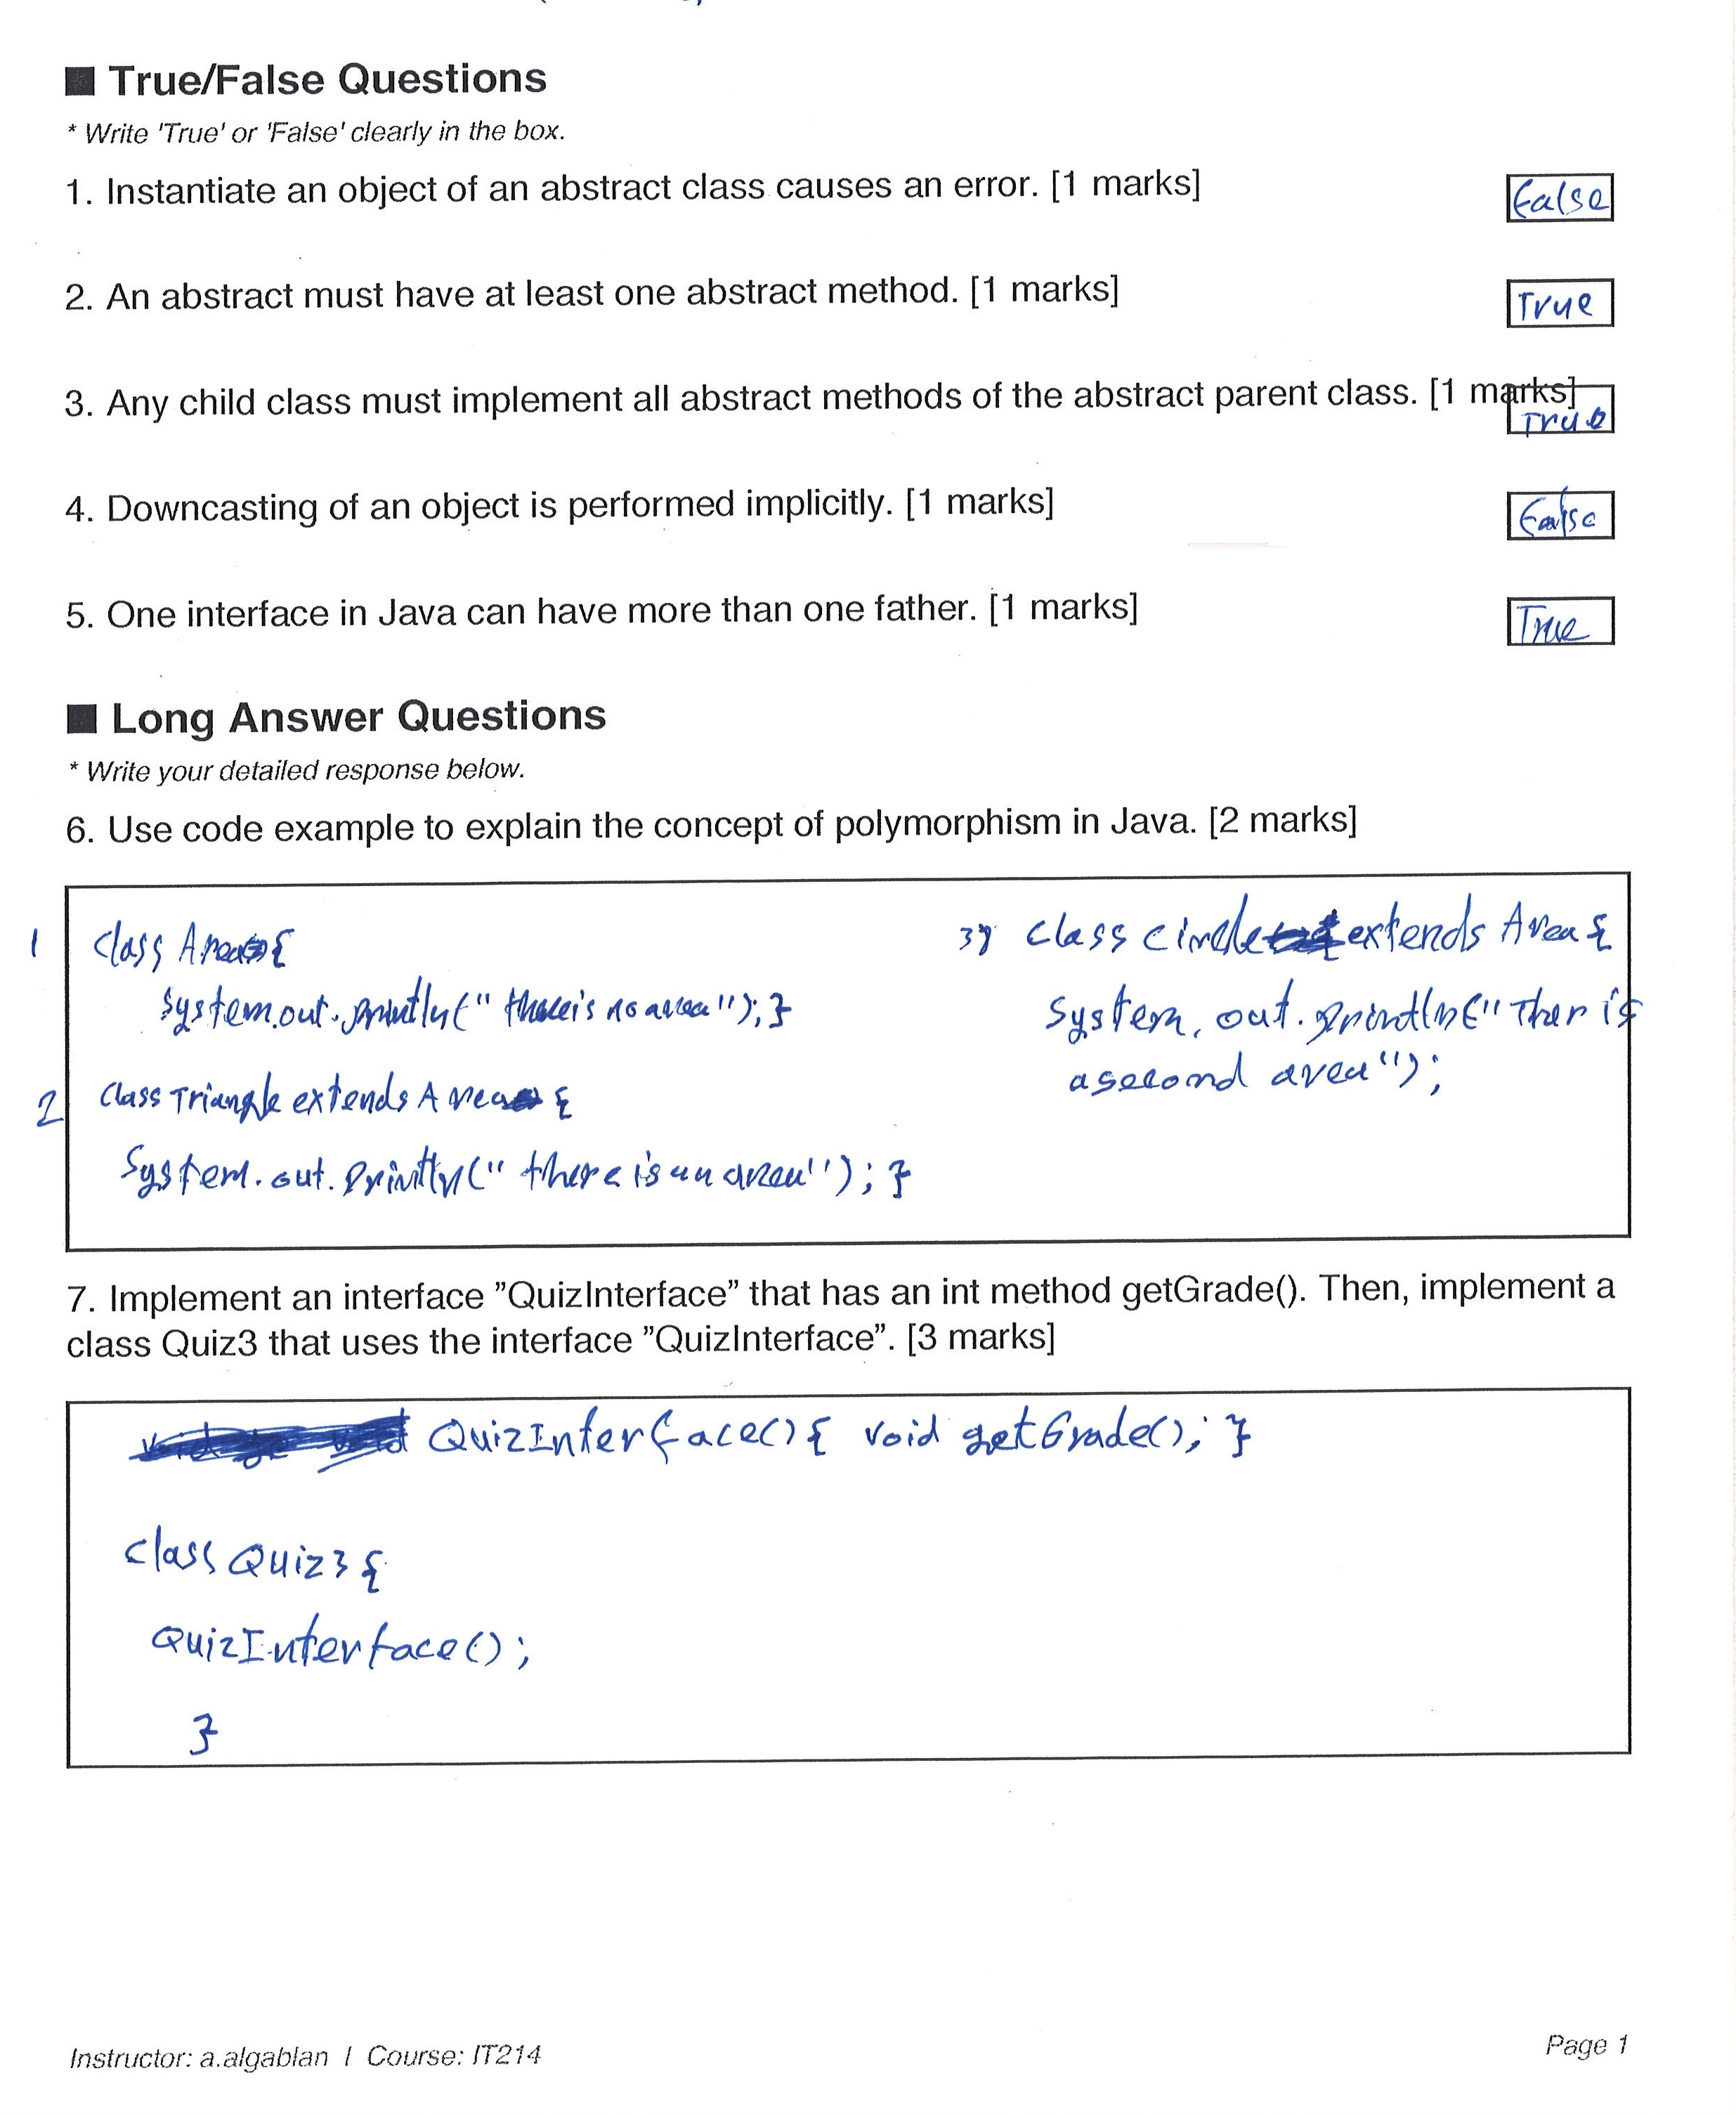 ■ True/False Questions
* Write 'True' or 'False' clearly in the box.
1. Instantiate an object of an abstract class causes an error. [1 marks]
False
2. An abstract must have at least one abstract method. [1 marks]
True
3. Any child class must implement all abstract methods of the abstract parent class. [1 marks]
True
4. Downcasting of an object is performed implicitly. [1 marks]
False
5. One interface in Java can have more than one father. [1 marks]
True
■ Long Answer Questions
* Write your detailed response below.
6. Use code example to explain the concept of polymorphism in Java. [2 marks]
1 class Area {
System.out.println(" there is no area "); }
2 Class Triangle extends Area {
System.out.println(" there is an area"); }
3) class circle extends Area {
System.out.println("Ther is
a second area");
7. Implement an interface ”QuizInterface” that has an int method getGrade(). Then, implement a
class Quiz3 that uses the interface ”QuizInterface”. [3 marks]
QuizInterface() { void getGrade(); }
class Quiz3 {
QuizInterface();
}
Instructor: a.algablan / Course: IT214
Page 1